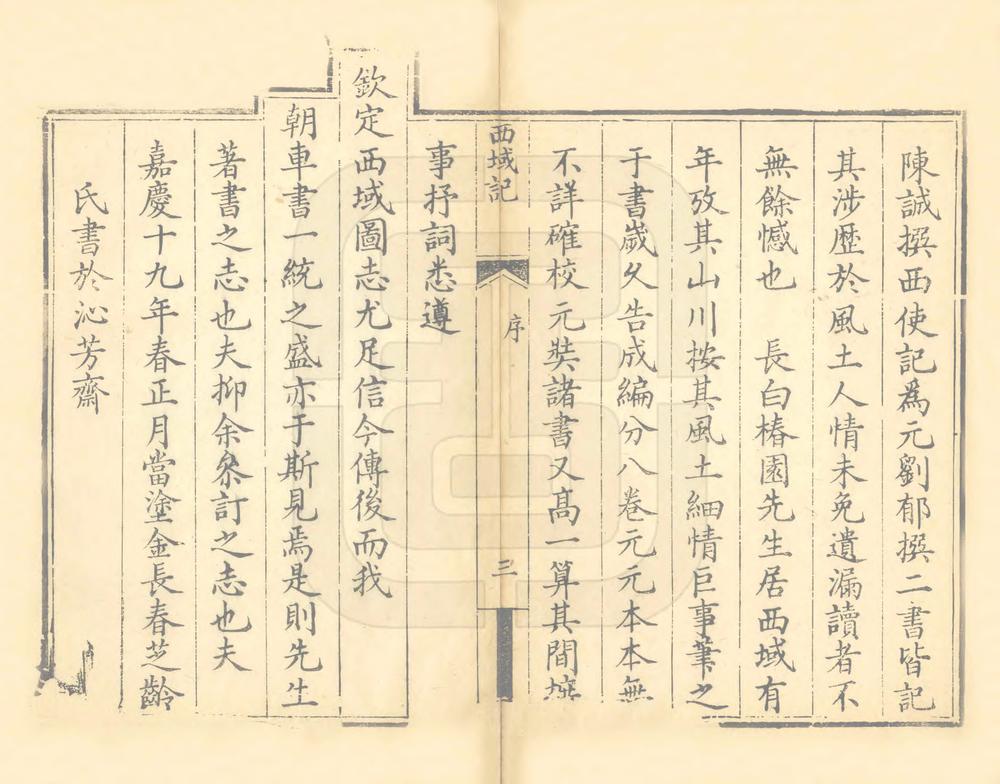 陳誠撰西使記爲元劉郁撰二書皆記
其涉歷於風土人情未免遺漏讀者不
無餘憾也　長白椿園先生居西域有
年攷其山川按其風土細情巨事筆之
于書嵗久告成編分八卷元元本本無
不詳確校元奘諸書又高一算其間摭
西域記
序
三
事抒詞悉遵
欽定西域圖志尤足信今傳後而我
朝車書一統之盛亦于斯見焉是則先生
著書之志也夫抑余叅訂之志也夫
嘉慶十九年春正月當塗金長春芝齡
氏書於沁芳齋